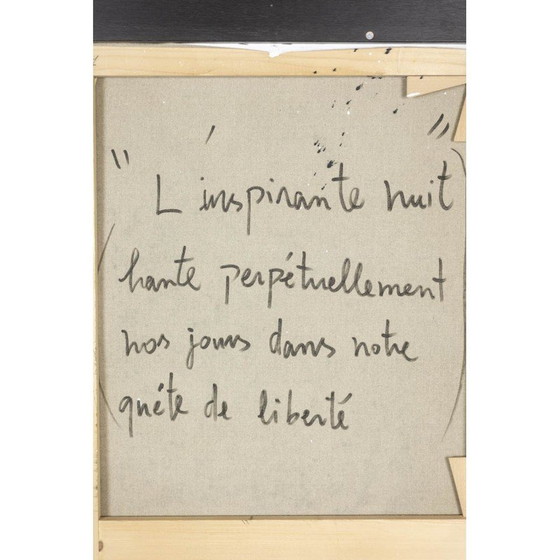 " L'inspirante nuit "
hante perpétuellement
nos jours dans notre
quête de liberté